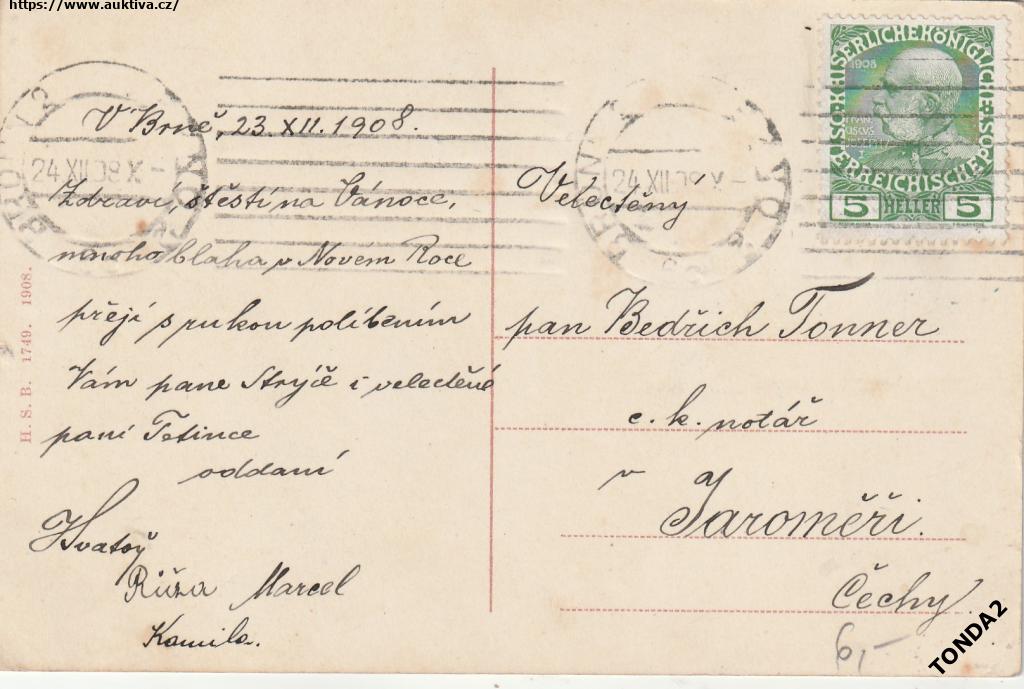 https://www.auktiva.cz/
V Brně, 23.XII.1908.
Zdraví, štěstí na Vánoce,
mnoho blaha v Novém Roce
přejí s rukou políbením
Vám pane Strýče i velectěné
paní Tetince
oddaní
Růža Marcel
Kamila.
H. S. B. 1749. 1908.
24 XII 08 X
24 XII 08 X
1908
5 HELLER 5
Velectěný
pan Bedřich Tonner
c. k. notář
v
Jaroměři.
Čechy.
6,-
TONDA2